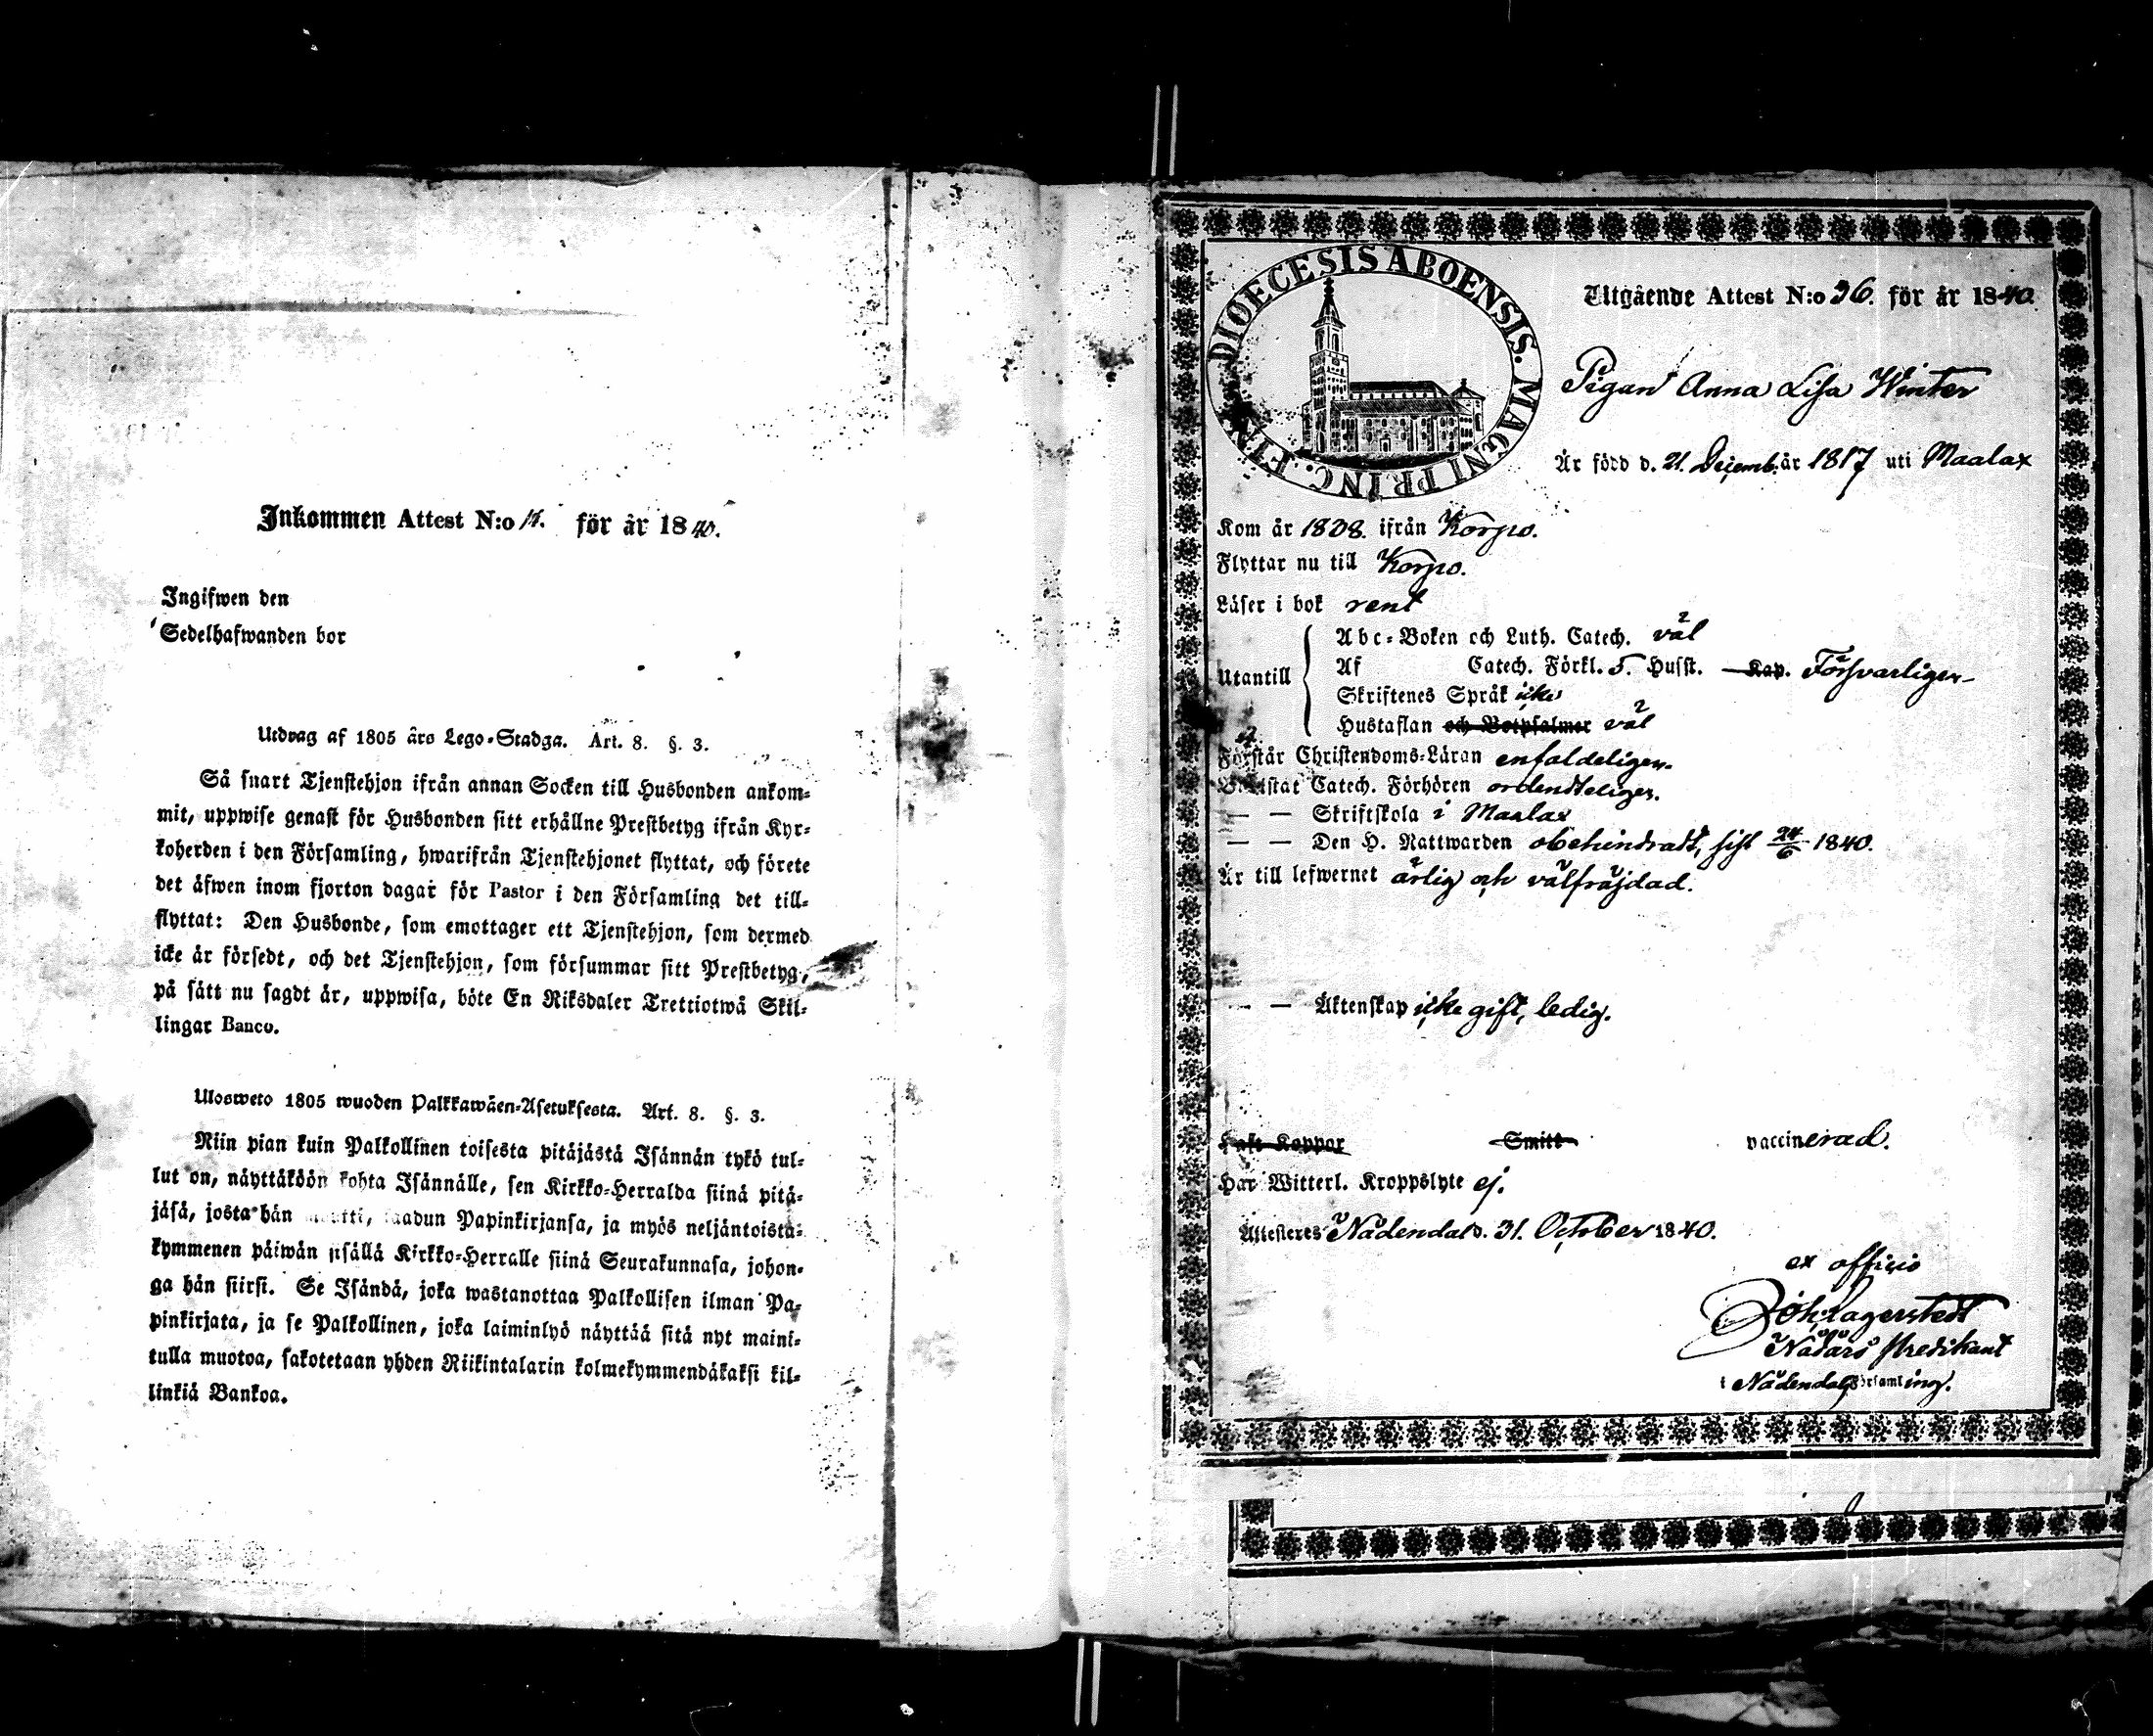 Inkommen Attest N:o för år 1840.
Ingifwen den
Sedelhafwanden bor
Utdrag af 1805 års Lego-Stadga. Art. 8. §. 3.
Så snart Tjenstehjon ifrån annan Socken till Husbonden ankom-
mit, uppwise genast för Husbonden sitt erhållne Prestbetyg ifrån Kyr-
koherden i den Församling, hwarifrån Tjenstehjonet flyttat, och förete
det äfwen inom fjorton dagar för Pastor i den Församling det till-
flyttat: Den Husbonde, som emottager ett Tjenstehjon, som dermed
icke är försedt, och det Tjenstehjon, som försummar sitt Prestbetyg,
på sätt nu sagdt är, uppwisa, böte En Riksdaler Trettiotwå Skil-
lingar Banco.
Ulosweto 1805 wuoden Palkkawäen-Asetuksesta. Art. 8. §. 3.
Niin pian kuin Palkollinen toisesta pitäjästä Isännän tykö tul-
lut on, näyttäköön kohta Isännälle, sen Kirkko-Herralda siinä pitä-
jäsä, josta hän muutti, saadun Papinkirjansa, ja myös neljäntoista-
kymmenen päiwän sisällä Kirkko-Herralle siinä Seurakunnasa, johon-
ga hän siirsi. Se Isändä, joka wastanottaa Palkollisen ilman Pa-
pinkirjata, ja se Palkollinen, joka laiminlyö näyttää sitä nyt maini-
tulla muotoa, sakotetaan yhden Riikintalarin kolmekymmendäkaksi kil-
linkiä Bankoa.
DIOECESIS ABOENSIS. MAGNI PRINC. FIN
Utgående Attest N:o 36. för år 1840.
Pigan Anna Lisa Winter
Är född d. 21. Decemb. år 1817 uti Maalax
Kom år 1838. ifrån Korpo.
Flyttar nu till Korpo.
Läser i bok rent
Utantill
Abc-Boken och Luth. Catech. väl
Af Catech. Förkl. 5. Husst. Kap. Försvarligen
Skriftenes Språk icke
Hustaflan och Botpsalmer väl
Förstår Christendoms-Läran enfaldeligen.
Bewistat Catech. Förhören ordenteligen.
— — Skriftskola i Maalax
— — Den H. Nattwarden obehindradt, sist 24/6 1840.
Är till lefwernet ärlig och välfräjdad.
— — Äktenskap icke gift, ledig.
Haft Koppor Smitt vaccinerad.
Har Witterl. Kroppslyte ej.
Attesteres Nådendal d. 31. October 1840.
ex officio
Joh. Lagerstedt
Nådårs Predikant
i Nådendals Församling.